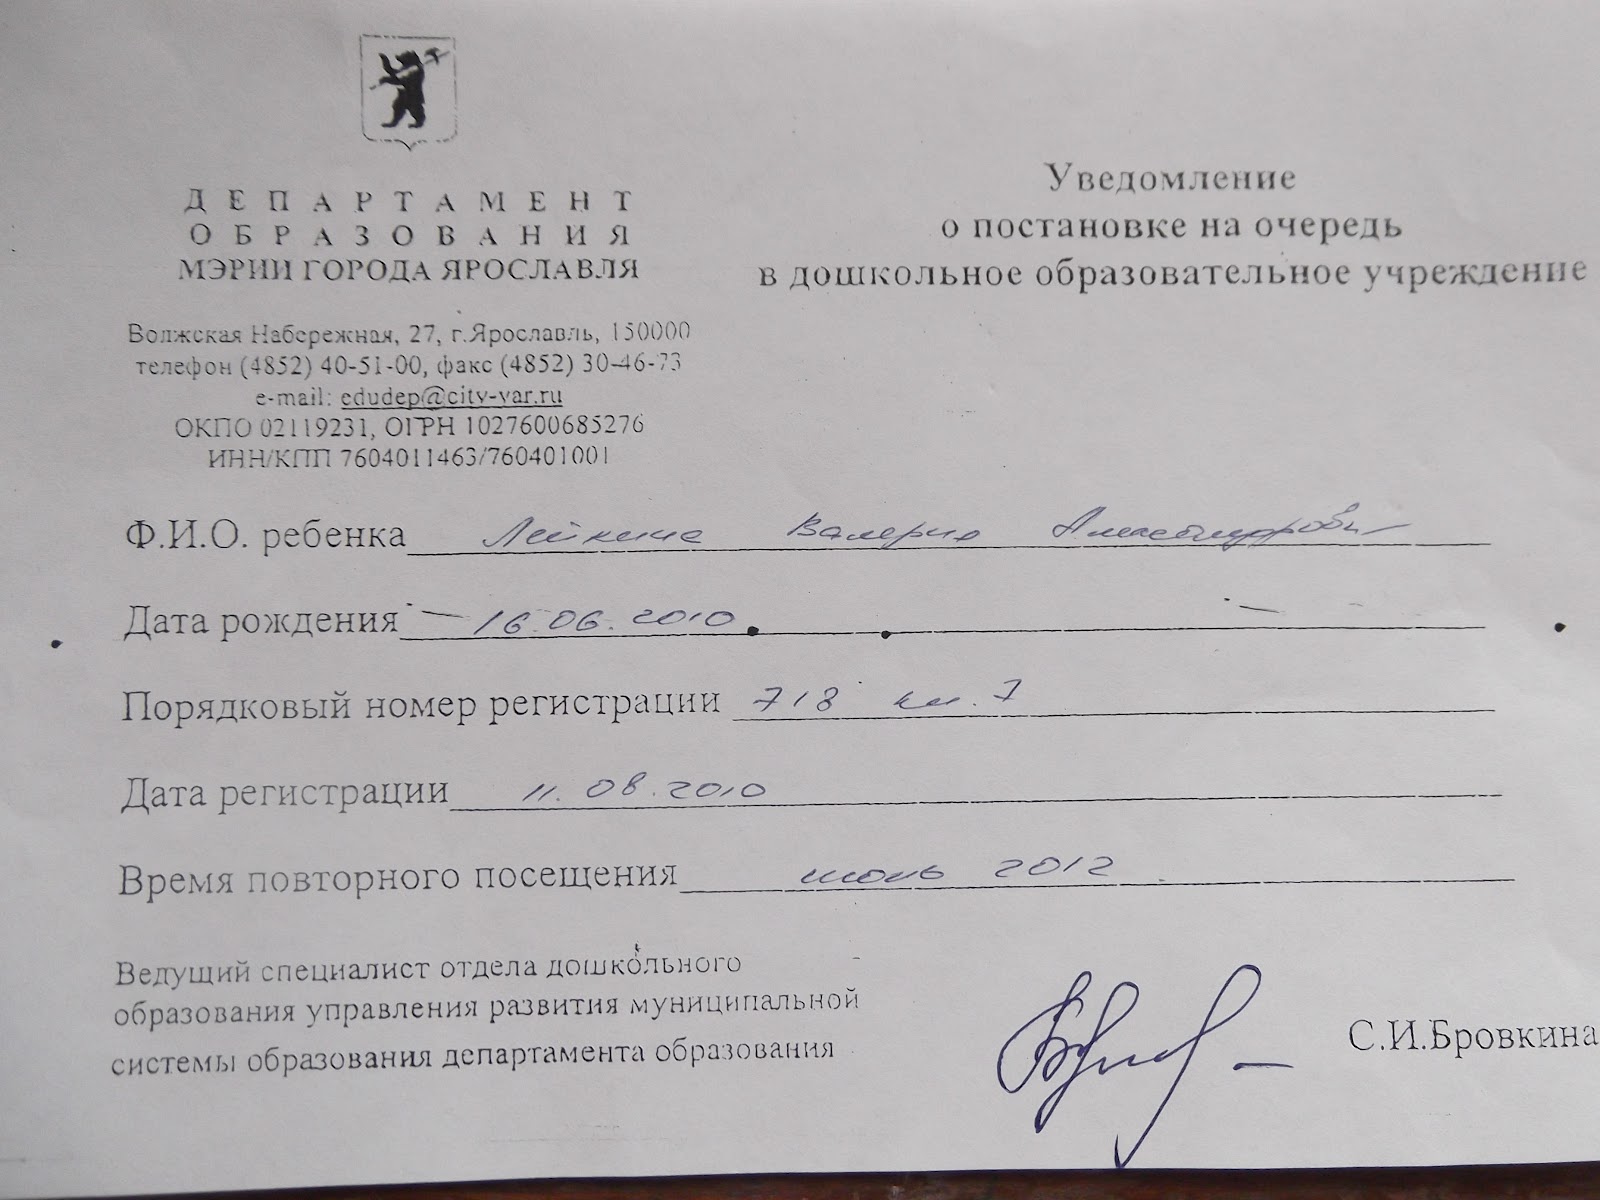 ДЕПАРТАМЕНТ
ОБРАЗОВАНИЯ
МЭРИИ ГОРОДА ЯРОСЛАВЛЯ
Волжская Набережная, 27, г.Ярославль, 150000
телефон (4852) 40-51-00, факс (4852) 30-46-73
e-mail: edudep@city-yar.ru
ОКПО 02119231, ОГРН 1027600685276
ИНН/КПП 7604011463/760401001
Уведомление
о постановке на очередь
в дошкольное образовательное учреждение
Ф.И.О. ребенка
Дата рождения 16.06.2010
Порядковый номер регистрации 718 кн. 7
Дата регистрации 11.08.2010
Время повторного посещения 2012
Ведущий специалист отдела дошкольного
образования управления развития муниципальной
системы образования департамента образования
С.И.Бровкина